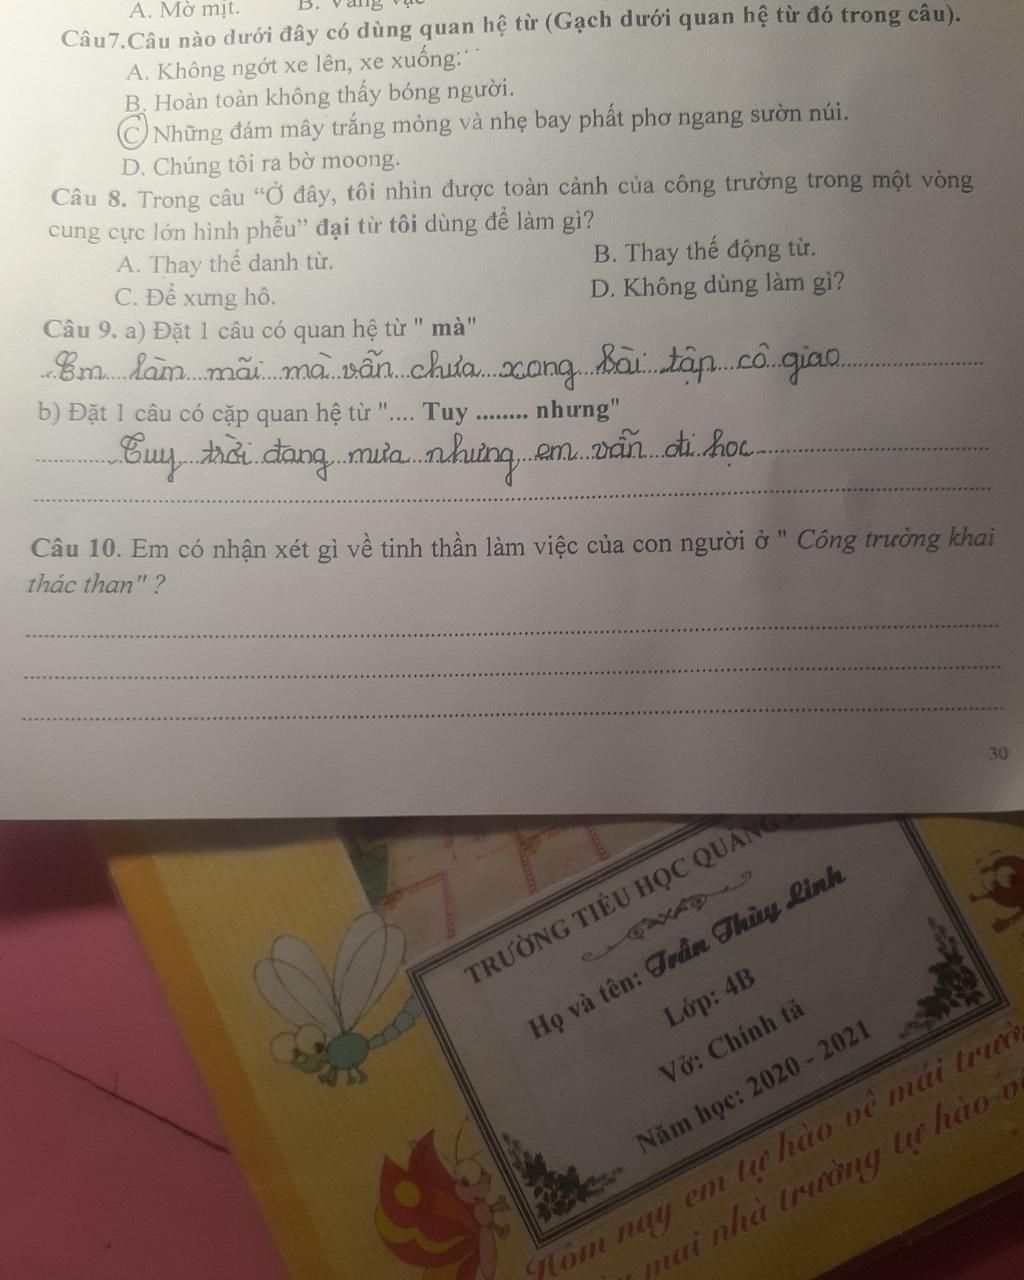 A. Mờ mịt. B. Vằng vặc
Câu7.Câu nào dưới đây có dùng quan hệ từ (Gạch dưới quan hệ từ đó trong câu).
A. Không ngớt xe lên, xe xuống.
B. Hoàn toàn không thấy bóng người.
C. Những đám mây trắng mỏng và nhẹ bay phất phơ ngang sườn núi.
D. Chúng tôi ra bờ moong.
Câu 8. Trong câu “Ở đây, tôi nhìn được toàn cảnh của công trường trong một vòng
cung cực lớn hình phễu” đại từ tôi dùng để làm gì?
A. Thay thế danh từ. B. Thay thế động từ.
C. Để xưng hô. D. Không dùng làm gì?
Câu 9. a) Đặt 1 câu có quan hệ từ " mà"
Em làm mãi mà vẫn chưa xong bài tập cô giao
b) Đặt 1 câu có cặp quan hệ từ ".... Tuy ........ nhưng"
Tuy trời đang mưa nhưng em vẫn đi học
Câu 10. Em có nhận xét gì về tinh thần làm việc của con người ở " Công trường khai
thác than" ?
30
TRƯỜNG TIỂU HỌC QUẢNG
Họ và tên: Trần Thùy Linh
Lớp: 4B
Vở: Chính tả
Năm học: 2020 - 2021
Hôm nay em tự hào về mái trường
mai nhà trường tự hào